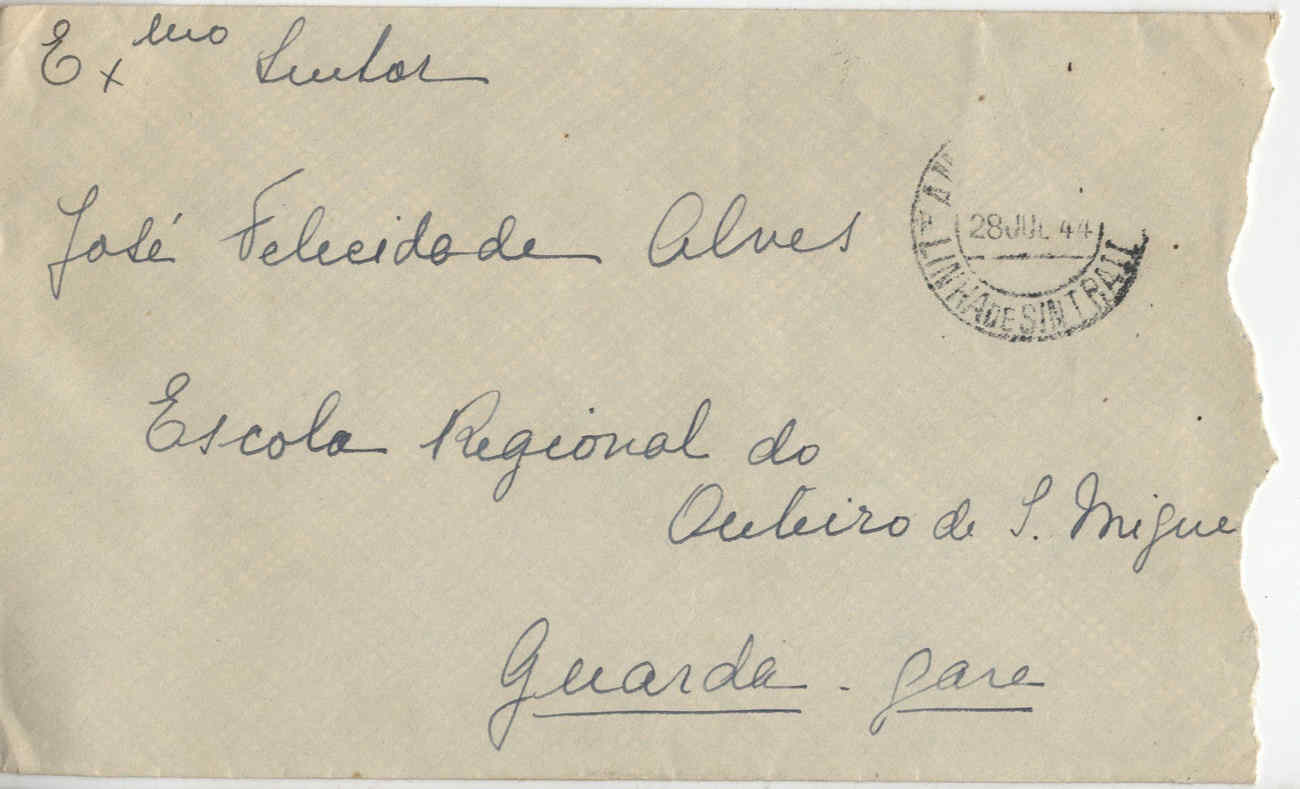 Exmo Senhor
José Felicidade Alves
28 JUL 44
LINHA DE SINTRA
Escola Regional do
Outeiro de S. Migue
Guarda - gare